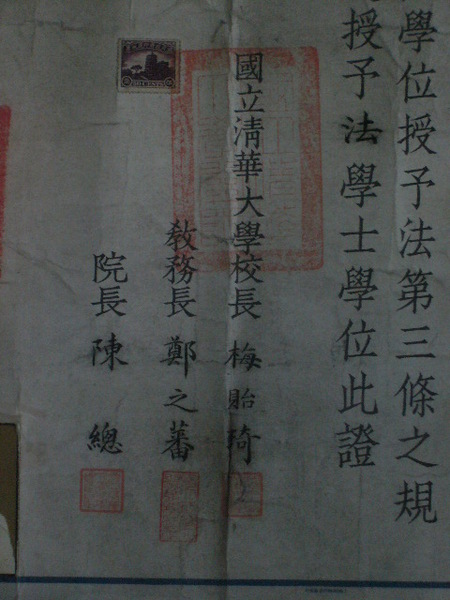 學位授予法第三條之規
授予法學士學位此證
國立清華大學校長 梅貽琦
教務長 鄭之蕃
院長 陳總